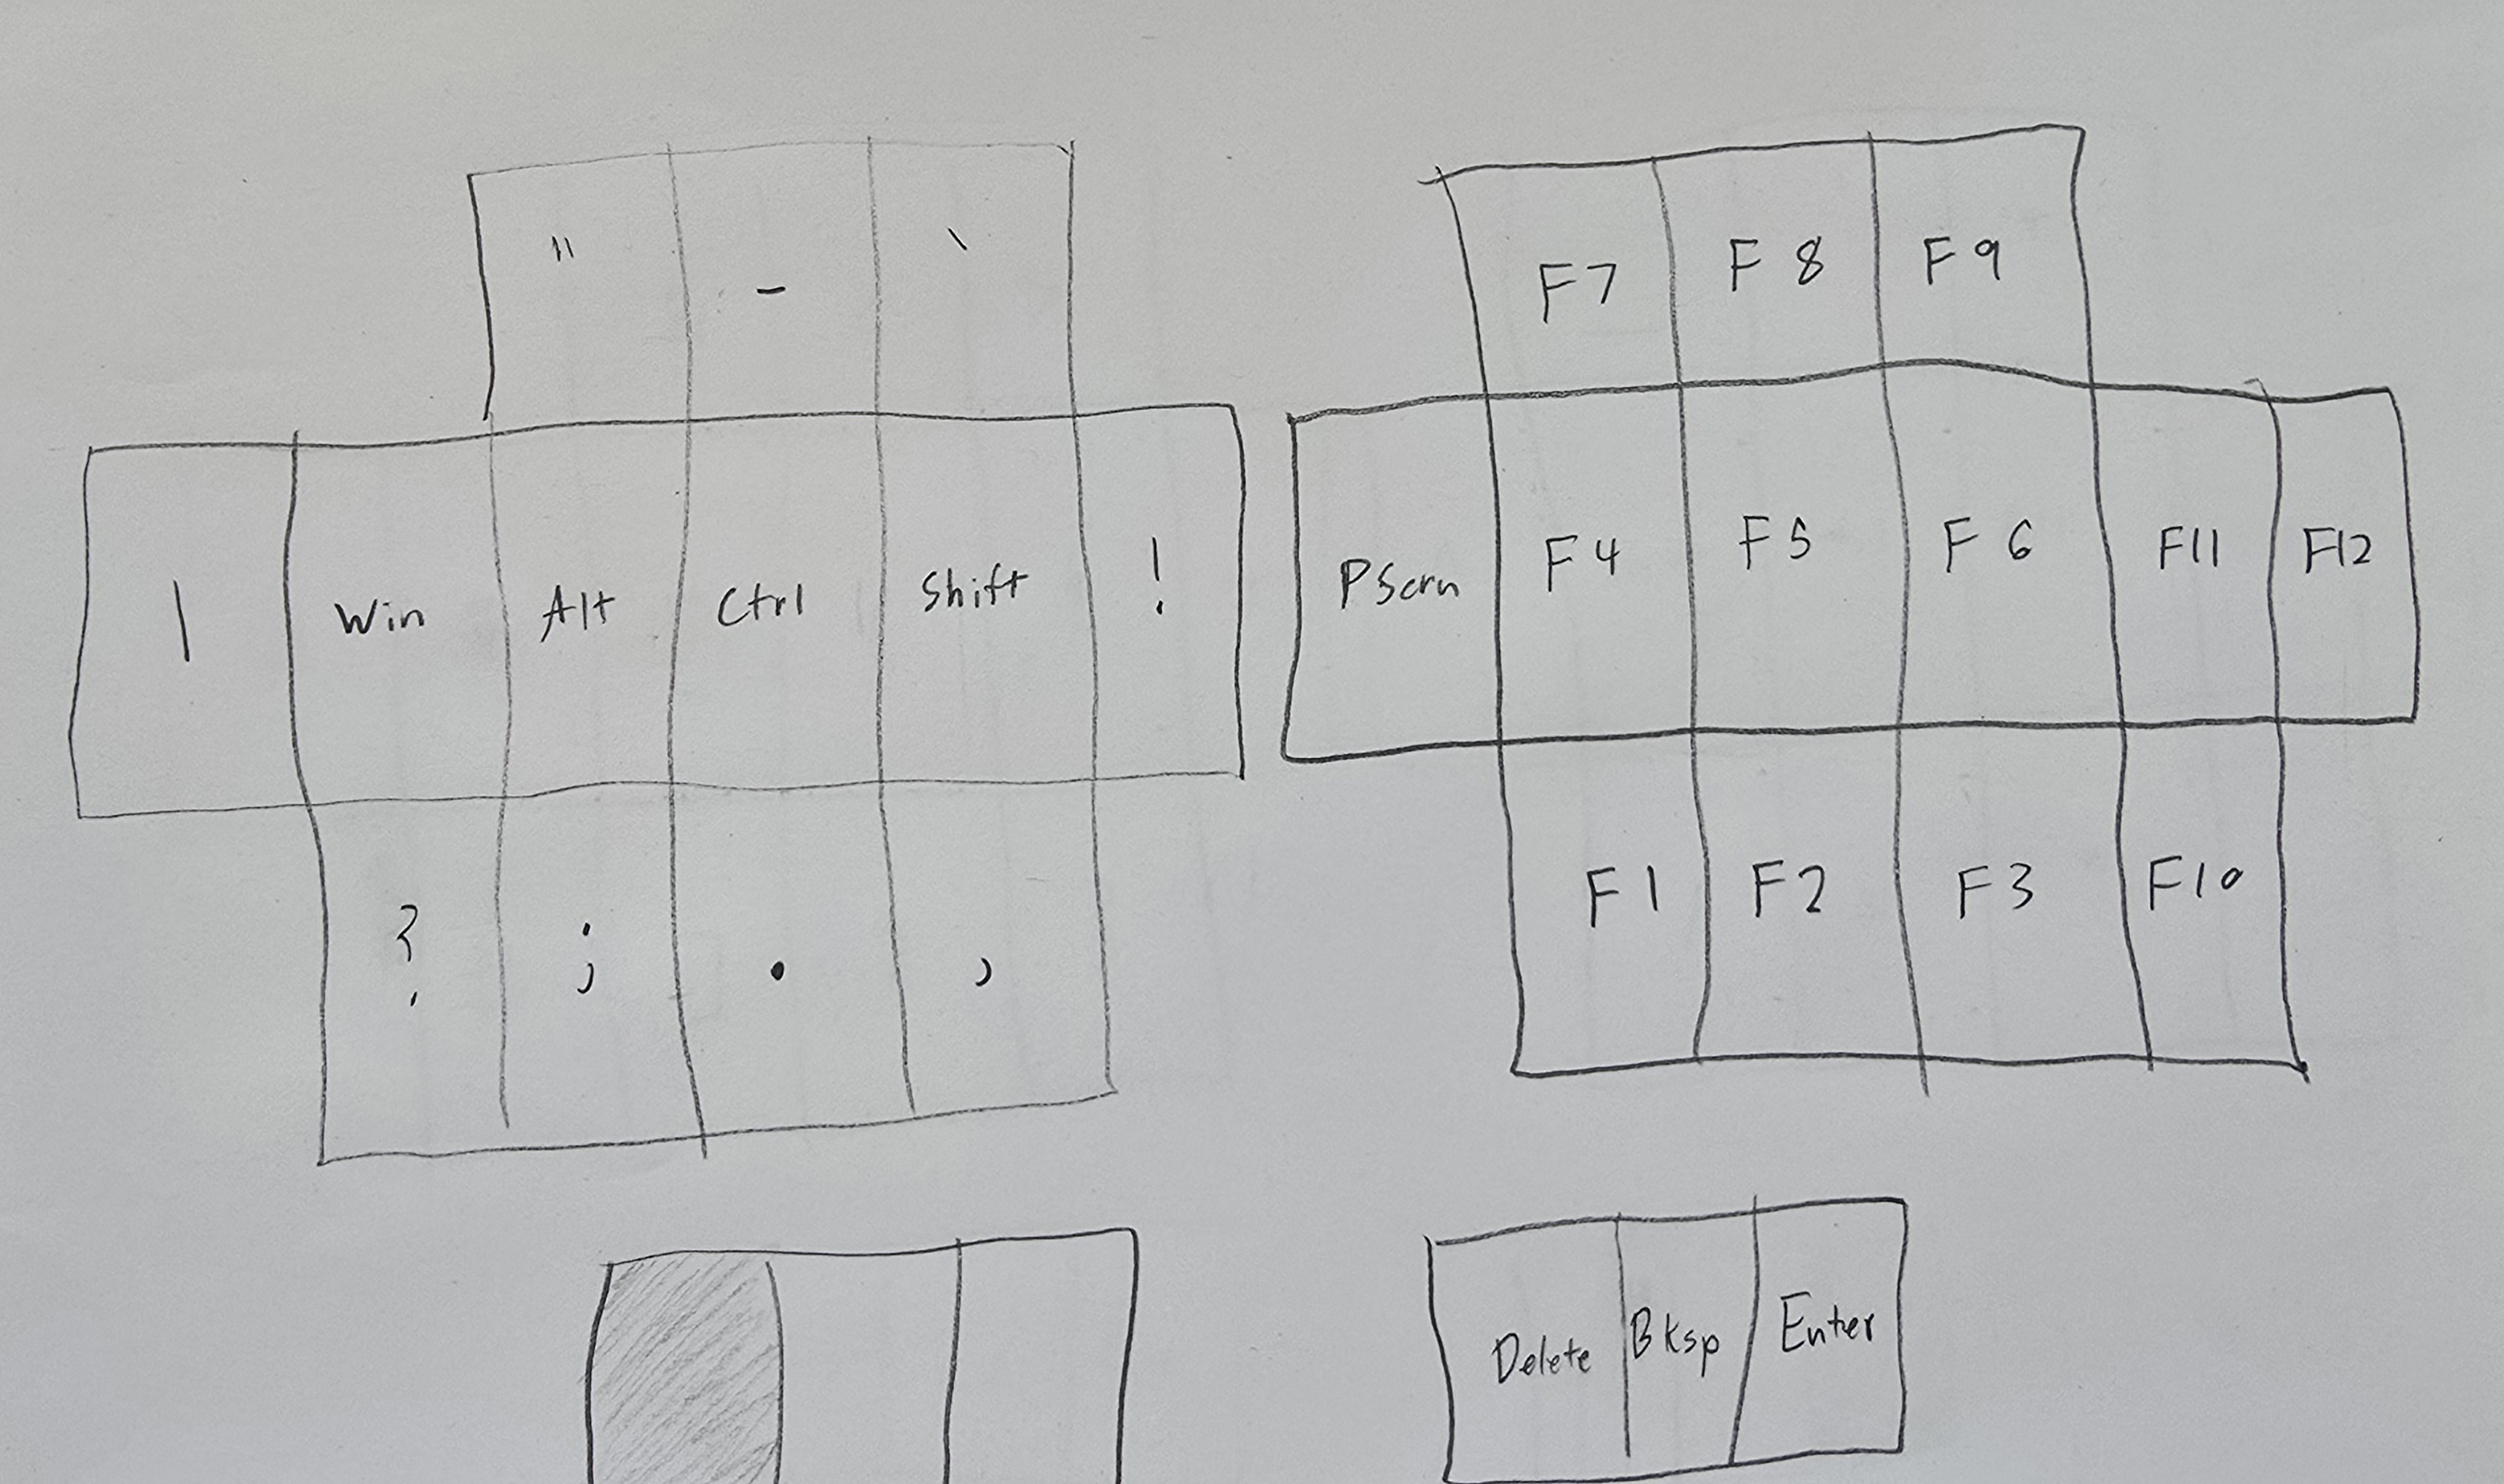 " - `
F7 F8 F9
| Win Alt Ctrl Shift !
PScrn F4 F5 F6 F11 F12
? ; . ,
F1 F2 F3 F10
Delete Bksp Enter